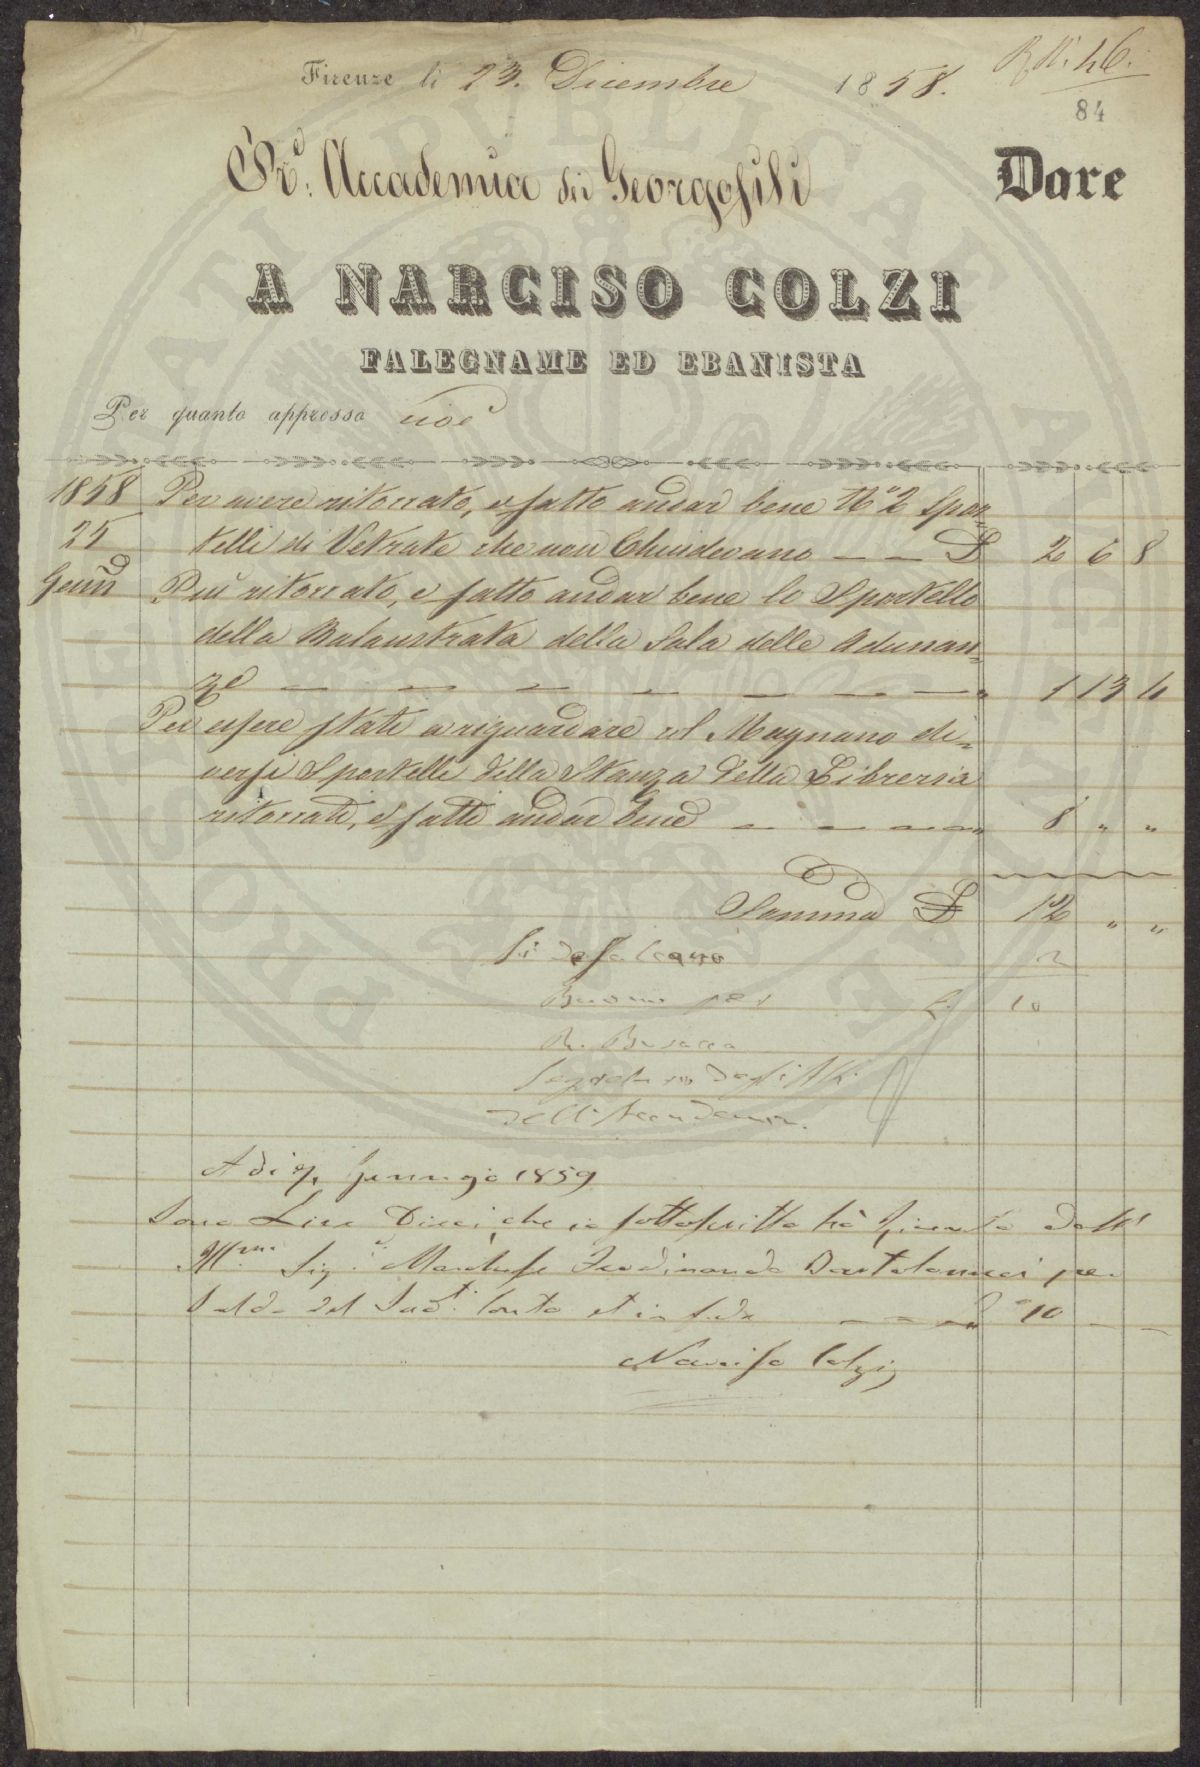 Firenze li 23. Dicembre 1858.
84
Rl. Accademia dei Georgofili Dare
A NARCISO COLZI
FALEGNAME ED EBANISTA
Per quanto appresso cioè
1858 Per avere ritoccato, e fatto andar bene No 2 Spor=
25 telli di Vetrate che non Chiudevano £ 2 6 8
Genn Più ritoccato, e fatto andar bene lo Sportello
della Balaustrata della Sala delle Adunan=
ze " 1 13 4
Per essere stati a riguardare col Magnano di=
versi Sportelli della Stanza della Libreria
ritoccati, e fatti andar bene " 8 " "
Somma £ 12 " "
Si defalcano 2
Buono per £ 10
R. Busacca
Segretario degli Atti
dell'Accademia.
A di Gennajo 1859
Sono Lire Dieci, che io sottoscritto hò ricevuto dall'
Illmo. Sig. Marchese Ferdinando Bartolommei per
Saldo del Sud. Conto et in fede £ 10
Narciso Colzi
PROSPERITATI PUBLICAE AUGENDAE